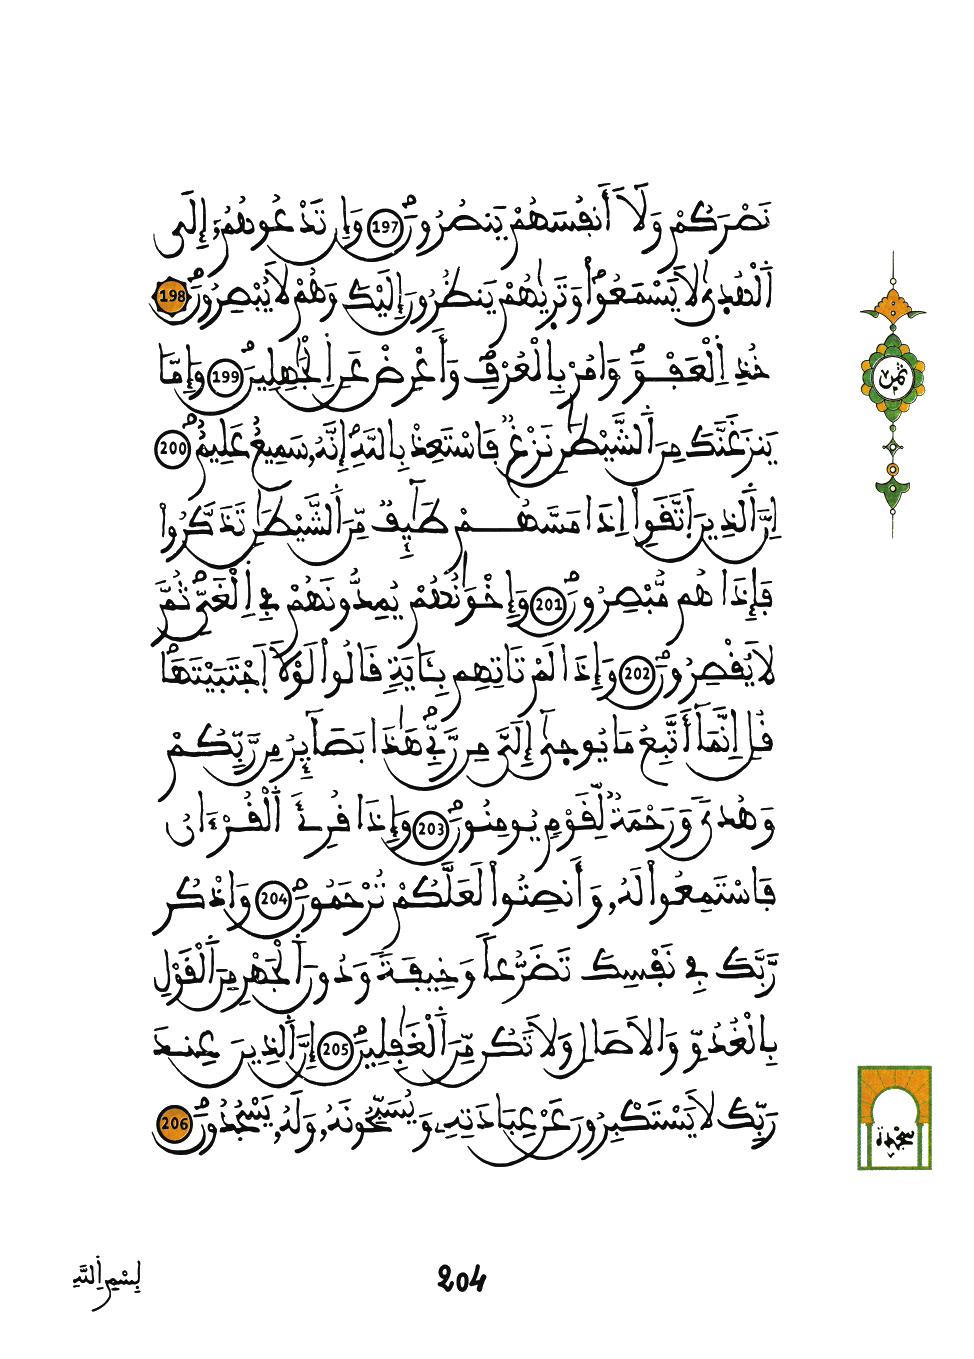 نَصْرَكُمْ وَلَآ أَنفُسَهُمْ يَنصُرُونَ 197 وَإِن تَدْعُوهُمُۥٓ إِلَى
اَ۬لْهُد۪ىٰ لَا يَسْمَعُواْ وَتَر۪يٰهُمْ يَنظُرُونَ إِلَيْكَ وَهُمْ لَا يُبْصِرُونَ 198
خُذِ اِ۬لْعَفْوَ وَامُرْ بِالْعُرْفِ وَأَعْرِضْ عَنِ اِ۬لْجَٰهِلِينَ 199 وَإِمَّا
يَنزَغَنَّكَ مِنَ اَ۬لشَّيْطَٰنِ نَزْغٌ فَاسْتَعِذْ بِاللَّهِ إِنَّهُۥ سَمِيعٌ عَلِيمٌ 200
إِنَّ اَ۬لذِينَ اَ۪تَّقَوِاْ اِذَا مَسَّهُمْ طَٰٓئِفٌ مِّنَ اَ۬لشَّيْطَٰنِ تَذَكَّرُواْ
فَإِذَا هُم مُّبْصِرُونَ 201 وَإِخْوَٰنُهُمْ يُمِدُّونَهُمْ فِے اِ۬لْغَيِّ ثُمَّ
لَا يُقْصِرُونَ 202 وَإِذَا لَمْ تَاتِهِم بِـَٔايَةٍ قَالُواْ لَوْلَا اَ۪جْتَبَيْتَهَا
قُلِ اِنَّمَآ أَتَّبِعُ مَا يُوح۪يٰٓ إِلَيَّ مِن رَّبِّے هَٰذَا بَصَآئِرُ مِن رَّبِّكُمْ
وَهُديٗ وَرَحْمَةٞ لِّقَوْمٖ يُومِنُونَ 203 وَإِذَا قُرِۓَ اَ۬لْقُرْءَانُ
فَاسْتَمِعُواْ لَهُۥ وَأَنصِتُواْ لَعَلَّكُمْ تُرْحَمُونَ 204 وَاذْكُر
رَّبَّكَ فِے نَفْسِكَ تَضَرُّعاٗ وَخِيفَةٗ وَدُونَ اَ۬لْجَهْرِ مِنَ اَ۬لْقَوْلِ
بِالْغُدُوِّ وَالَاصَالِ وَلَا تَكُن مِّنَ اَ۬لْغَٰفِلِينَ 205 إِنَّ اَ۬لذِينَ عِندَ
رَبِّكَ لَا يَسْتَكْبِرُونَ عَنْ عِبَادَتِهِۦ وَيُسَبِّحُونَهُۥ وَلَهُۥ يَسْجُدُونَ 206
ثمن
سجدة
بِسْمِ اِ۬للَّهِ
204